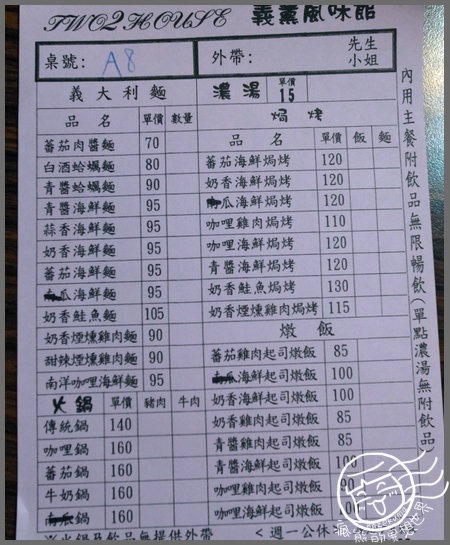 TWO2 HOUSE 義薰風味館
桌號: A8 外帶: 先生 小姐
義大利麵
品名 單價 數量
蕃茄肉醬麵 70
白酒蛤蠣麵 80
青醬蛤蠣麵 90
青醬海鮮麵 95
蒜香海鮮麵 95
奶香海鮮麵 95
蕃茄海鮮麵 95
瓜海鮮麵 95
奶香鮭魚麵 105
奶香煙燻雞肉麵 90
甜辣煙燻雞肉麵 90
南洋咖哩海鮮麵 95
火鍋 單價 豬肉 牛肉
傳統鍋 140
咖哩鍋 160
蕃茄鍋 160
牛奶鍋 160
鍋 160
※火鍋及飲品無提供外帶
濃湯 單價 15
焗烤
品名 單價 飯 麵
蕃茄海鮮焗烤 120
奶香海鮮焗烤 120
瓜海鮮焗烤 120
咖哩雞肉焗烤 110
咖哩海鮮焗烤 120
青醬海鮮焗烤 120
奶香鮭魚焗烤 130
奶香煙燻雞肉焗烤 115
燉飯
蕃茄雞肉起司燉飯 85
海鮮起司燉飯 100
奶香海鮮起司燉飯 100
奶香雞肉起司燉飯 85
青醬雞肉起司燉飯 85
青醬海鮮起司燉飯 100
咖哩雞肉起司燉飯 90
咖哩海鮮起司燉飯 100
<週一公休
內用主餐附飲品無限暢飲(單點濃湯無附飲品)